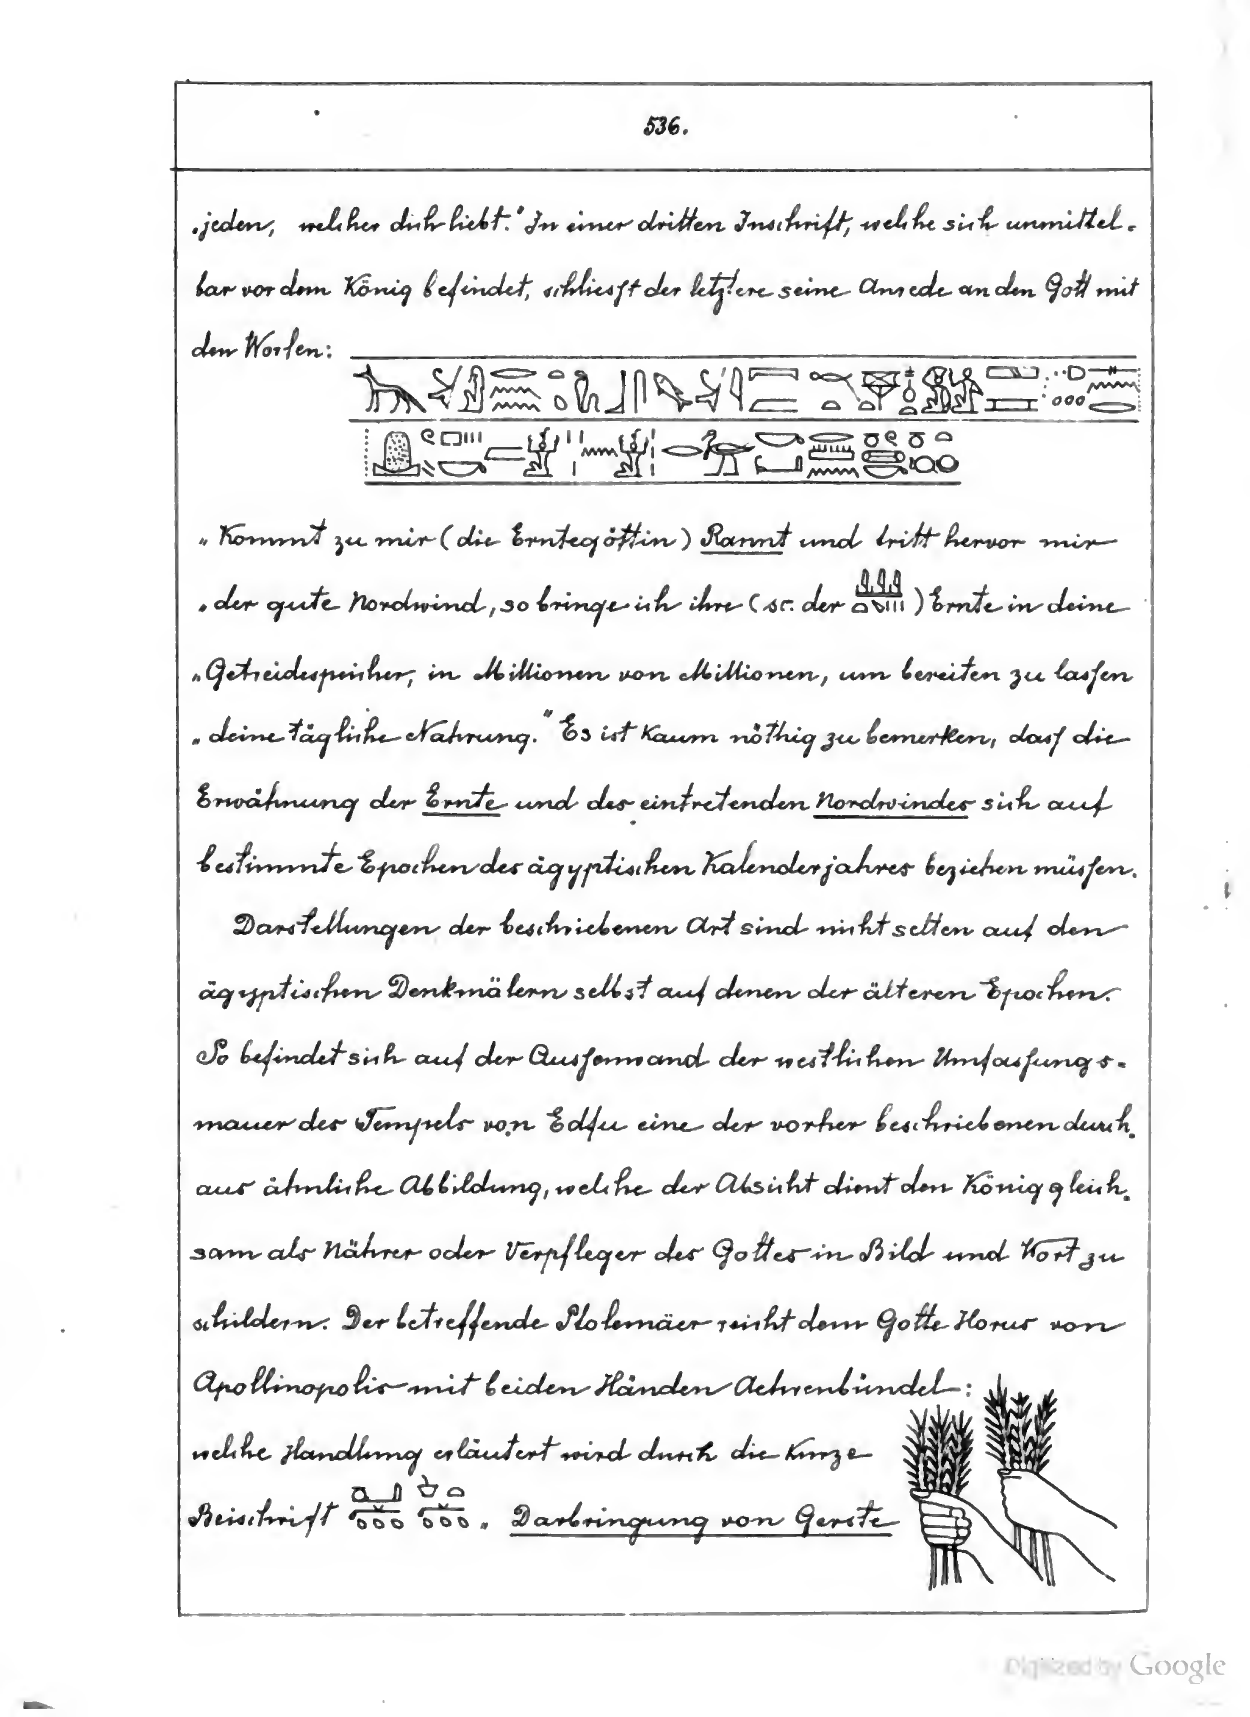 536.
„jeden, welcher dich liebt.“ In einer dritten Inschrift, welche sich unmittel-
bar vor dem König befindet, schliesst der letztere seine Anrede an den Gott mit
den Worten:
„Kommt zu mir (die Erntegöttin) Rannt und tritt hervor mir
„der gute Nordwind, so bringe ich ihre (sc. der ) Ernte in deine
„Getreidespeicher, in Millionen von Millionen, um bereiten zu lassen
„deine tägliche Nahrung.“ Es ist kaum nöthig zu bemerken, dass die
Erwähnung der Ernte und des eintretenden Nordwindes sich auf
bestimmte Epochen des ägyptischen Kalenderjahres beziehen müssen.
Darstellungen der beschriebenen Art sind nicht selten auf den
ägyptischen Denkmälern selbst auf denen der älteren Epochen.
So befindet sich auf der Aussenwand der westlichen Umfassungs-
mauer des Tempels von Edfu eine der vorher beschriebenen durch-
aus ähnliche Abbildung, welche der Absicht dient den König gleich-
sam als Nährer oder Verpfleger des Gottes in Bild und Wort zu
schildern. Der betreffende Ptolemäer reicht dem Gotte Horus von
Apollinopolis mit beiden Händen Aehrenbündel:
welche Handlung erläutert wird durch die kurze
Beischrift „Darbringung von Gerste
Digitized by Google